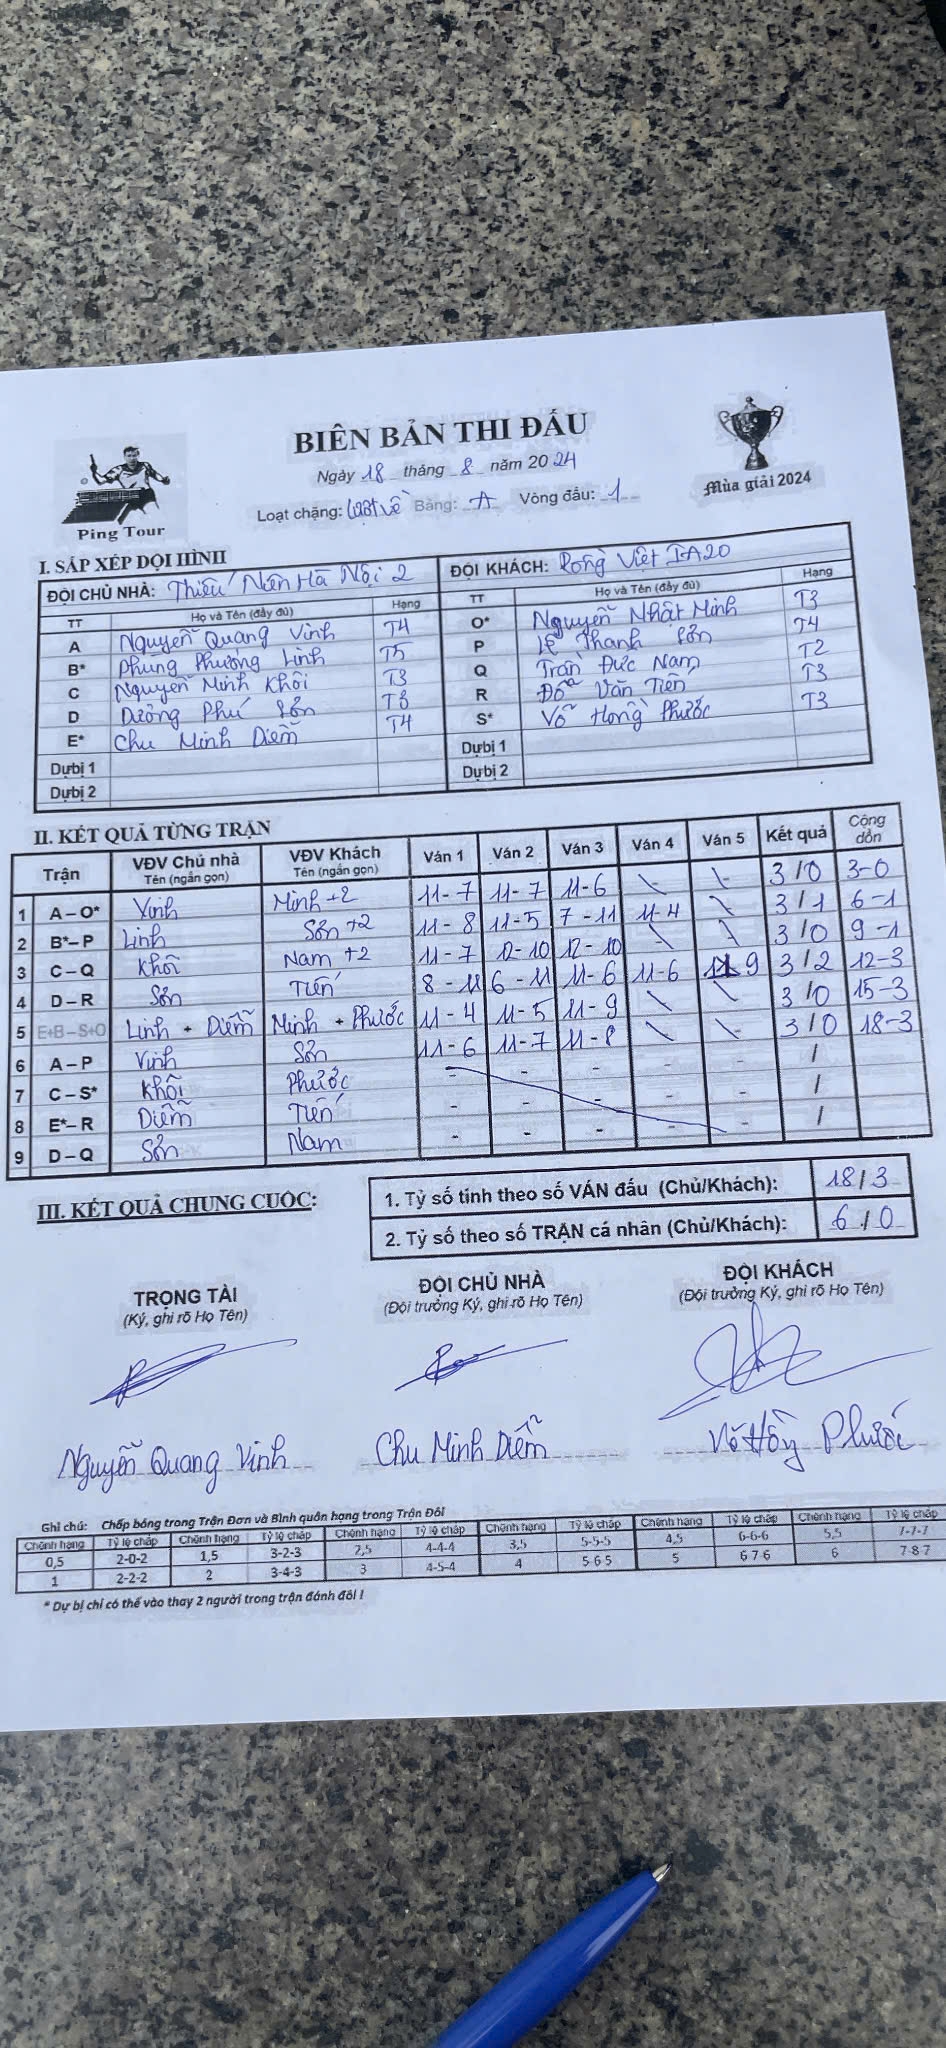 BIÊN BẢN THI ĐẤU
Ngày 18 tháng 8 năm 2024
Loạt chặng: Lượt về Bảng: A Vòng đấu: 1
Ping Tour
Mùa giải 2024
I. SẮP XẾP ĐỘI HÌNH
ĐỘI CHỦ NHÀ: Thiếu Niên Hà Nội 2 ĐỘI KHÁCH: Rồng Việt IA20
TT Họ và Tên (đầy đủ) Hạng TT Họ và Tên (đầy đủ) Hạng
A Nguyễn Quang Vinh T4 O* Nguyễn Nhật Minh T3
B* Phùng Phương Linh T5 P Lê Thanh Sơn T4
C Nguyễn Minh Khôi T3 Q Trần Đức Nam T2
D Dương Phú Sơn T3 R Đỗ Văn Tiến T3
E* Chu Minh Diễm T4 S* Võ Hồng Phước T3
Dự bị 1 Dự bị 1
Dự bị 2 Dự bị 2
II. KẾT QUẢ TỪNG TRẬN
Trận VĐV Chủ nhà Tên (ngắn gọn) VĐV Khách Tên (ngắn gọn) Ván 1 Ván 2 Ván 3 Ván 4 Ván 5 Kết quả Cộng dồn
1 A – O* Vinh Minh +2 11 - 7 11 - 7 11 - 6 \ \ 3 / 0 3-0
2 B* – P Linh Sơn +2 11 - 8 11 - 5 7 - 11 11 - 4 \ 3 / 1 6-1
3 C – Q Khôi Nam +2 11 - 7 12 - 10 12 - 10 \ \ 3 / 0 9-1
4 D – R Sơn Tiến 8 - 11 6 - 11 11 - 6 11 - 6 11 - 9 3 / 2 12-3
5 E+B – S+O Linh + Diễm Minh + Phước 11 - 4 11 - 5 11 - 9 \ \ 3 / 0 15-3
6 A – P Vinh Sơn 11 - 6 11 - 7 11 - 8 \ \ 3 / 0 18-3
7 C – S* Khôi Phước - - - - - /
8 E* – R Diễm Tiến - - - - - /
9 D – Q Sơn Nam - - - - - /
III. KẾT QUẢ CHUNG CUỘC:
1. Tỷ số tính theo số VÁN đấu (Chủ/Khách): 18 / 3
2. Tỷ số theo số TRẬN cá nhân (Chủ/Khách): 6 / 0
TRỌNG TÀI ĐỘI CHỦ NHÀ ĐỘI KHÁCH
(Ký, ghi rõ Họ Tên) (Đội trưởng Ký, ghi rõ Họ Tên) (Đội trưởng Ký, ghi rõ Họ Tên)
Nguyễn Quang Vinh Chu Minh Diễm Võ Hồng Phước
Ghi chú: Chấp bóng trong Trận Đơn và Bình quân hạng trong Trận Đôi
Chênh hạng Tỷ lệ chấp Chênh hạng Tỷ lệ chấp Chênh hạng Tỷ lệ chấp Chênh hạng Tỷ lệ chấp Chênh hạng Tỷ lệ chấp Chênh hạng Tỷ lệ chấp
0,5 2-0-2 1,5 3-2-3 2,5 4-4-4 3,5 5-5-5 4,5 6-6-6 5,5 7-7-7
1 2-2-2 2 3-4-3 3 4-5-4 4 5-6-5 5 6-7-6 6 7-8-7
* Dự bị chỉ có thể vào thay 2 người trong trận đánh đôi !